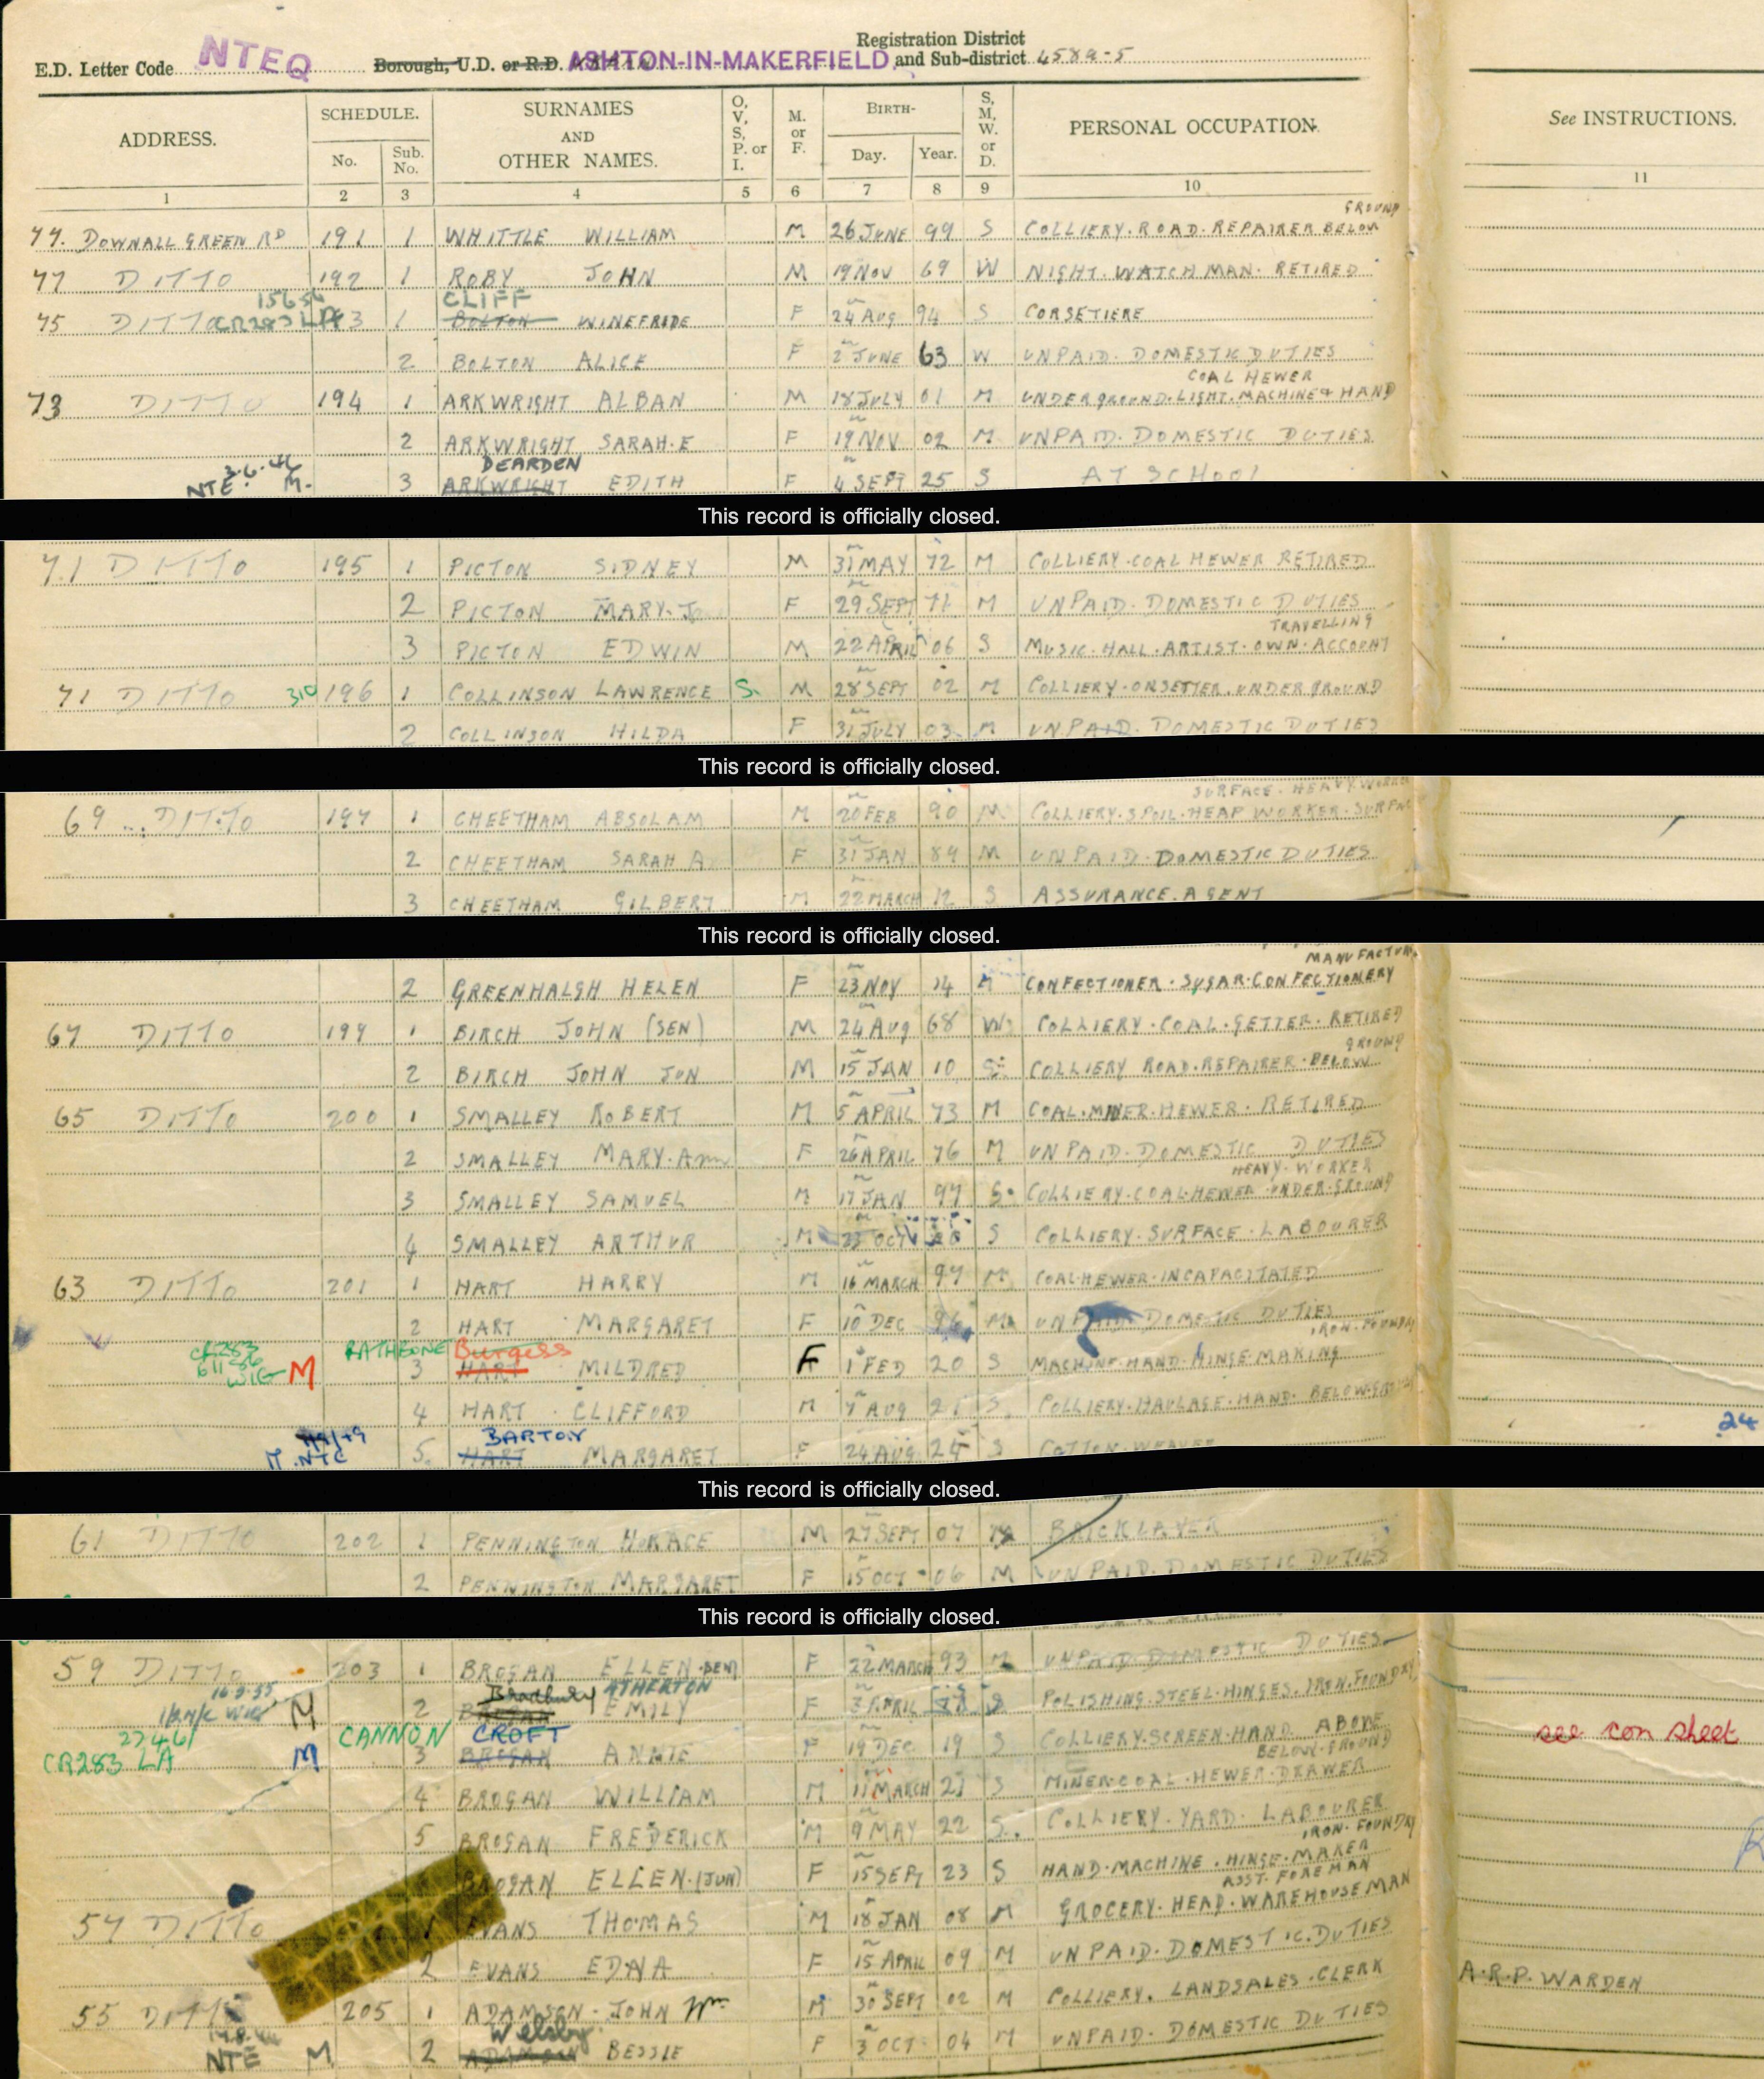 Registration District
E.D. Letter Code NTEQ Borough, U.D. or R.D. ASHTON-IN-MAKERFIELD and Sub-district 458a-5
ADDRESS. SCHEDULE. SURNAMES AND OTHER NAMES. O, V, S, P. or I. M. or F. BIRTH- S, M, W. or D. PERSONAL OCCUPATION. See INSTRUCTIONS.
No. Sub. No. Day. Year.
1 2 3 4 5 6 7 8 9 10 11
GROUND
DOWNALL GREEN RD 191 1 WHITTLE WILLIAM M 26 JUNE 99 S COLLIERY. ROAD. REPAIRER BELOW
77 DITTO 192 1 ROBY JOHN M 19 NOV 69 W NIGHT. WATCHMAN. RETIRED
CLIFF
75 DITTO CR283 LA 1 BOLTON WINEFRIDE F 24 AUG 94 S CORSETIERE
2 BOLTON ALICE F 2 JUNE 63 W UNPAID. DOMESTIC DUTIES
COAL HEWER
73 DITTO 194 1 ARKWRIGHT ALBAN M 18 JULY 01 M UNDERGROUND. LIGHT. MACHINE & HAND
2 ARKWRIGHT SARAH. E F 19 NOV 02 M UNPAID. DOMESTIC DUTIES
3.6.46 DEARDEN
NTE. M. 3 ARKWRIGHT EDITH F 4 SEPT 25 S AT SCHOOL
This record is officially closed.
71 DITTO 195 1 PICTON SIDNEY M 31 MAY 72 M COLLIERY. COAL HEWER RETIRED
2 PICTON MARY. J F 29 SEPT 71 M UNPAID. DOMESTIC DUTIES
TRAVELLING
3 PICTON EDWIN M 22 APRIL 06 S MUSIC. HALL. ARTIST. OWN. ACCOUNT
71 DITTO 310 196 1 COLLINSON LAWRENCE S. M 28 SEPT 02 M COLLIERY. ONSETTER. UNDERGROUND
2 COLLINSON HILDA F 31 JULY 03 M UNPAID. DOMESTIC DUTIES
This record is officially closed.
SURFACE. HEAVY. WORKER
69 DITTO 197 1 CHEETHAM ABSOLAM M 20 FEB 90 M COLLIERY. SPOIL. HEAP WORKER. SURFAC
2 CHEETHAM SARAH A F 31 JAN 89 M UNPAID. DOMESTIC DUTIES
3 CHEETHAM GILBERT M 22 MARCH 12 S ASSURANCE. AGENT
This record is officially closed.
MANUFACTUR
2 GREENHALGH HELEN F 23 NOV 14 M CONFECTIONER. SUGAR. CONFECTIONERY
67 DITTO 199 1 BIRCH JOHN (SEN) M 24 AUG 68 W COLLIERY. COAL. GETTER. RETIRED
GROUND
2 BIRCH JOHN JUN M 15 JAN 10 S COLLIERY ROAD. REPAIRER. BELOW
65 DITTO 200 1 SMALLEY ROBERT M 5 APRIL 73 M COAL. MINER. HEWER. RETIRED
2 SMALLEY MARY. Ann F 26 APRIL 76 M UNPAID. DOMESTIC DUTIES
HEAVY. WORKER
3 SMALLEY SAMUEL M 17 JAN 97 S. COLLIERY. COAL. HEWER UNDER. GROUND
4 SMALLEY ARTHUR M OCT S COLLIERY. SURFACE. LABOURER
63 DITTO 201 1 HART HARRY M 16 MARCH 97 M COAL. HEWER. INCAPACITATED
2 HART MARGARET F 10 DEC 96 M UNPAID DOMESTIC DUTIES
CR283 RATHBONE Burgess IRON. FOUNDRY
WIG M 3 HART MILDRED F 1 FEB 20 S MACHINE. HAND. HINGE. MAKING
4 HART CLIFFORD M 7 AUG 21 S. COLLIERY. HAULAGE. HAND. BELOW. GROUND
BARTON 24
M. NTE 5. HART MARGARET F 24 AUG 24 S COTTON WEAVER
This record is officially closed.
61 DITTO 202 1 PENNINGTON HORACE M 27 SEPT 07 M BRICKLAYER
2 PENNINGTON MARGARET F 15 OCT 06 M UNPAID. DOMESTIC DUTIES
This record is officially closed.
59 DITTO 203 1 BROGAN ELLEN. (SEN) F 22 MARCH 93 M UNPAID DOMESTIC DUTIES
16.9.55 Bradbury ATHERTON
WIG M 2 BROGAN EMILY F 3 APRIL S POLISHING. STEEL. HINGES. IRON. FOUNDRY
27461 CANNON CROFT see con sheet
CR283 LA M 3 BROGAN ANNIE F 19 DEC 19 S COLLIERY. SCREEN. HAND ABOVE
BELOW. GROUND
4 BROGAN WILLIAM M 11 MARCH 21 S MINER. COAL. HEWER. DRAWER
5 BROGAN FREDERICK M 9 MAY 22 S. COLLIERY. YARD. LABOURER
IRON. FOUNDRY
BROGAN ELLEN. (JUN) F 15 SEPT 23 S HAND. MACHINE. HINGE. MAKER
ASST. FOREMAN
57 DITTO 1 EVANS THOMAS M 18 JAN 08 M GROCERY. HEAD. WAREHOUSE MAN
2 EVANS EDNA F 15 APRIL 09 M UNPAID. DOMESTIC. DUTIES
55 DITTO 205 1 ADAMSON. JOHN Wm M 30 SEPT 02 M COLLIERY. LANDSALES. CLERK A.R.P. WARDEN
Welsby
NTE M 2 ADAMSON BESSIE F 3 OCT 04 M UNPAID. DOMESTIC DUTIES